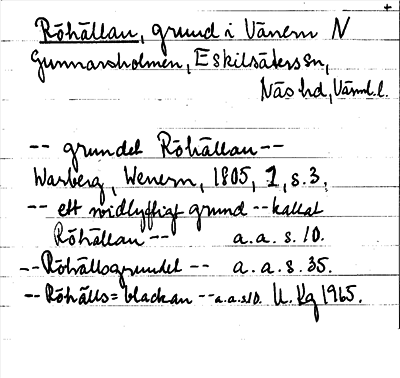 +
Röhällan, grund i Vänern N
Gunnarsholmen, Eskilsäters sn,
Näs hd, Värml.l.
-- grundet Röhällan --
Warberg, Wenern, 1805, 1, s.3,
-- ett widlyftigt grund -- kallat
Röhällan -- a.a.s.10.
-- Röhällsgrundet -- a.a.s.35.
-- Röhälls= blackan -- a.a.s10. U. Kg 1965.